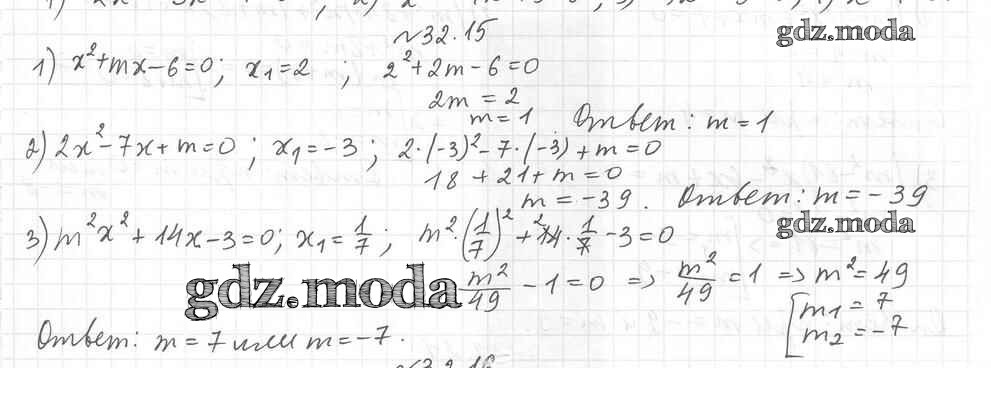 №32.15
gdz.moda
1) x²+mx-6=0; x₁=2 ; 2²+2m-6=0
2m = 2
m=1 Ответ: m=1
2) 2x²-7x+m=0; x₁=-3; 2·(-3)²-7·(-3)+m=0
18+21+m=0
m=-39. Ответ: m=-39
gdz.moda
3) m²x²+14x-3=0; x₁=1/7; m²·(1/7)²+14·1/7-3=0
gdz.moda
m²/49-1=0 => m²/49=1 => m²=49
[m₁=7
m₂=-7
Ответ: m=7 или m=-7.
№32.16